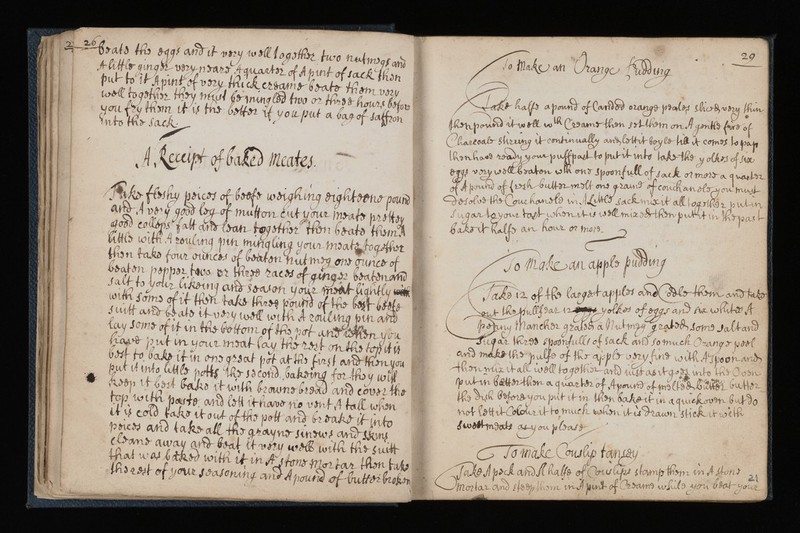 2 26
beate the eggs and it very well together two nutmegs and
A little ginger very neare A quarter of A pint of sack then
put to it A pint of very thick creame beate them very
well together they must be mingled two or three hours before
you fry them it is the better if you put a bag of saffron
into the sack
A Receipt of baked Meates.
Take fleshy peices of beefe weighing eighteene pound
and A very good leg of mutton cut your meate prettey
good collops fatt and lean together then beate them A
little with A rouling pin mingling your meate together
then take four ounces of beaten nutmeg one ounce of
beaten pepper two or three races of ginger beaten and
salt to your likeing and season your meat lightly
with some of it then take three pound of the best beefe
suitt and beate it very well with A rouling pin and
lay some of it in the bottom of the pot and when you
have put in your meat lay the rest on the top it is
best to bake it in one great pot at the first and then you
put it into little potts the second bakeing for they will
keep it best bake it with browne bread and cover the
top with paste and lett it have no vent A tall when
it is cold take it out of the pott and breake it into
peices and take all the grayne sinews and skins
cleane away and beat it very well with the suitt
that was baked with it in A stone mortar then take
the rest of your seasoning and A pound of butter broken
29
To Make an Orange Pudding
Take halfe a pound of Candied orange peales slice very thin
then pound it well wth Creame then set them on A gentle fire of
Charcoale stirring it continually and lett it boyle till it comes to pap
then have ready your puffpast to put it into take the yolkes of six
eggs very well beaton wth one spoonfull of sack or more a quarter
of A pound of fresh butter melt one graine of couchanele, you must
desolve the Couchanele in A Little sack mix it all together put in
sugar to your tast when it is well mixed then put it in the past
bake it halfe an hour or more.
To Make an apple pudding
Take 12 of the largest apples and Codle them and take
out the pulf bear 12 yolkes of eggs and six whites A
penny Manchet grated A Nutmeg grated some salt and
sugar three spoonfulls of sack and so much Orange peel
and make the pulfe of the apple very fine with A spoon and
then mix it all well together and just as it goes into the Oven
put in better then a quarter of A pound of melted butter butter
the dish before you put it in then bake it in a quick oven but do
not lett it Colour it to much when it is drawn stick it with
sweetmeats as you please
To make Couslip tansey
Take A peck and A halfe of Couslips stamp them in A stone
mortar and steep them in A pint of Creame while you beat your
21